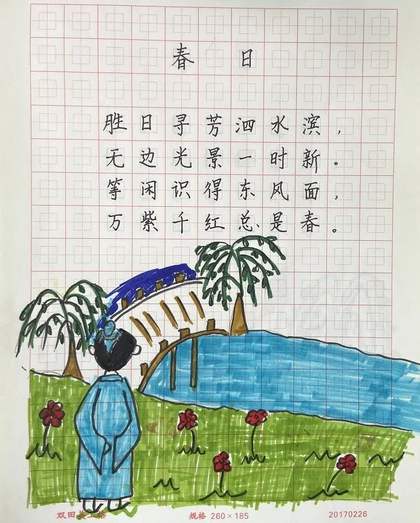 春 日
胜日寻芳泗水滨，
无边光景一时新。
等闲识得东风面，
万紫千红总是春。
规格 260×185 20170226